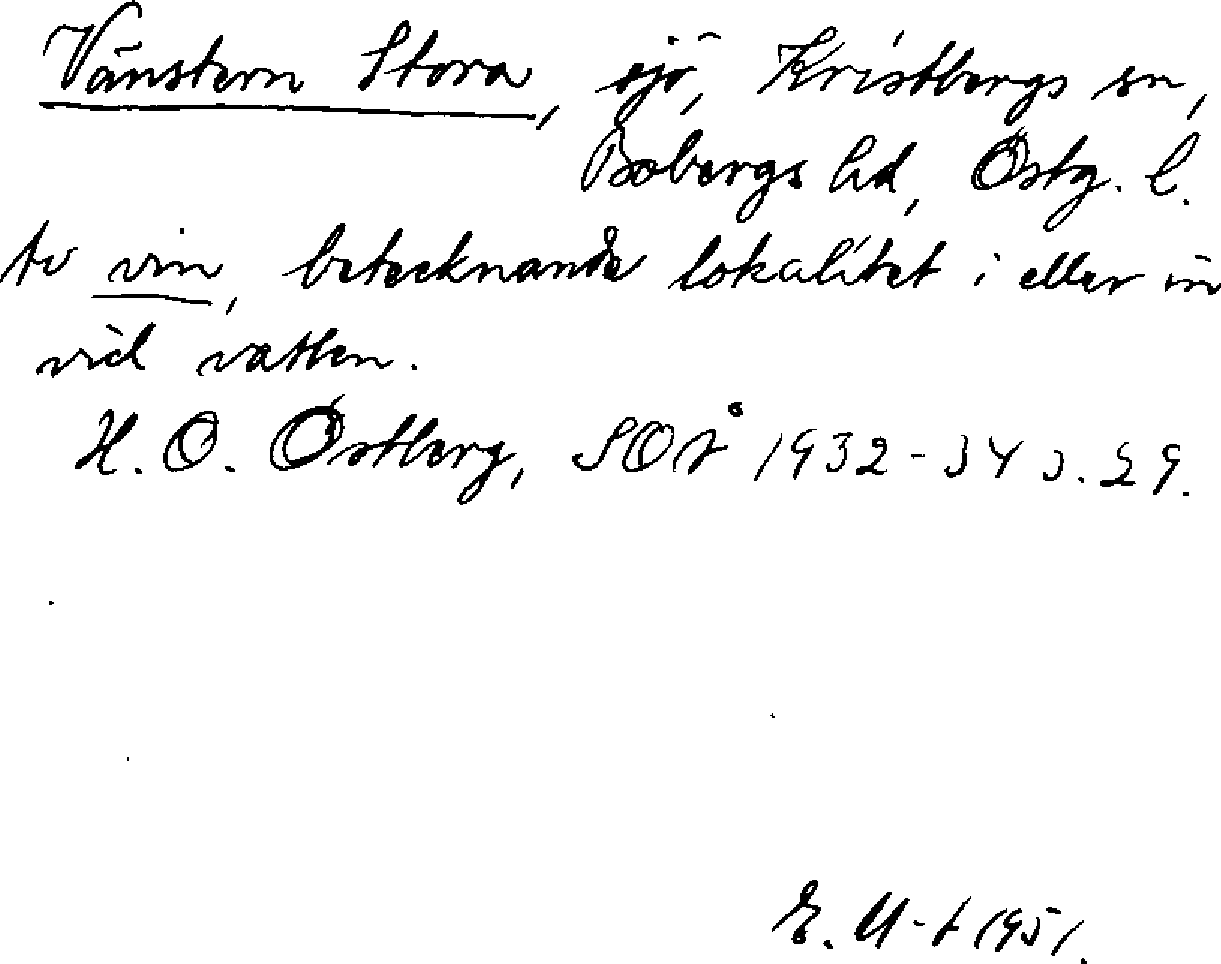 Vänstern Stora, sjö, Kristbergs sn,
Bobergs hd, Östg. l.
Av vin, betecknande lokalitet i eller in
vid vatten.
H. O. Östberg, SOÅ 1932-34 s. 29.
E. U-t 1951.